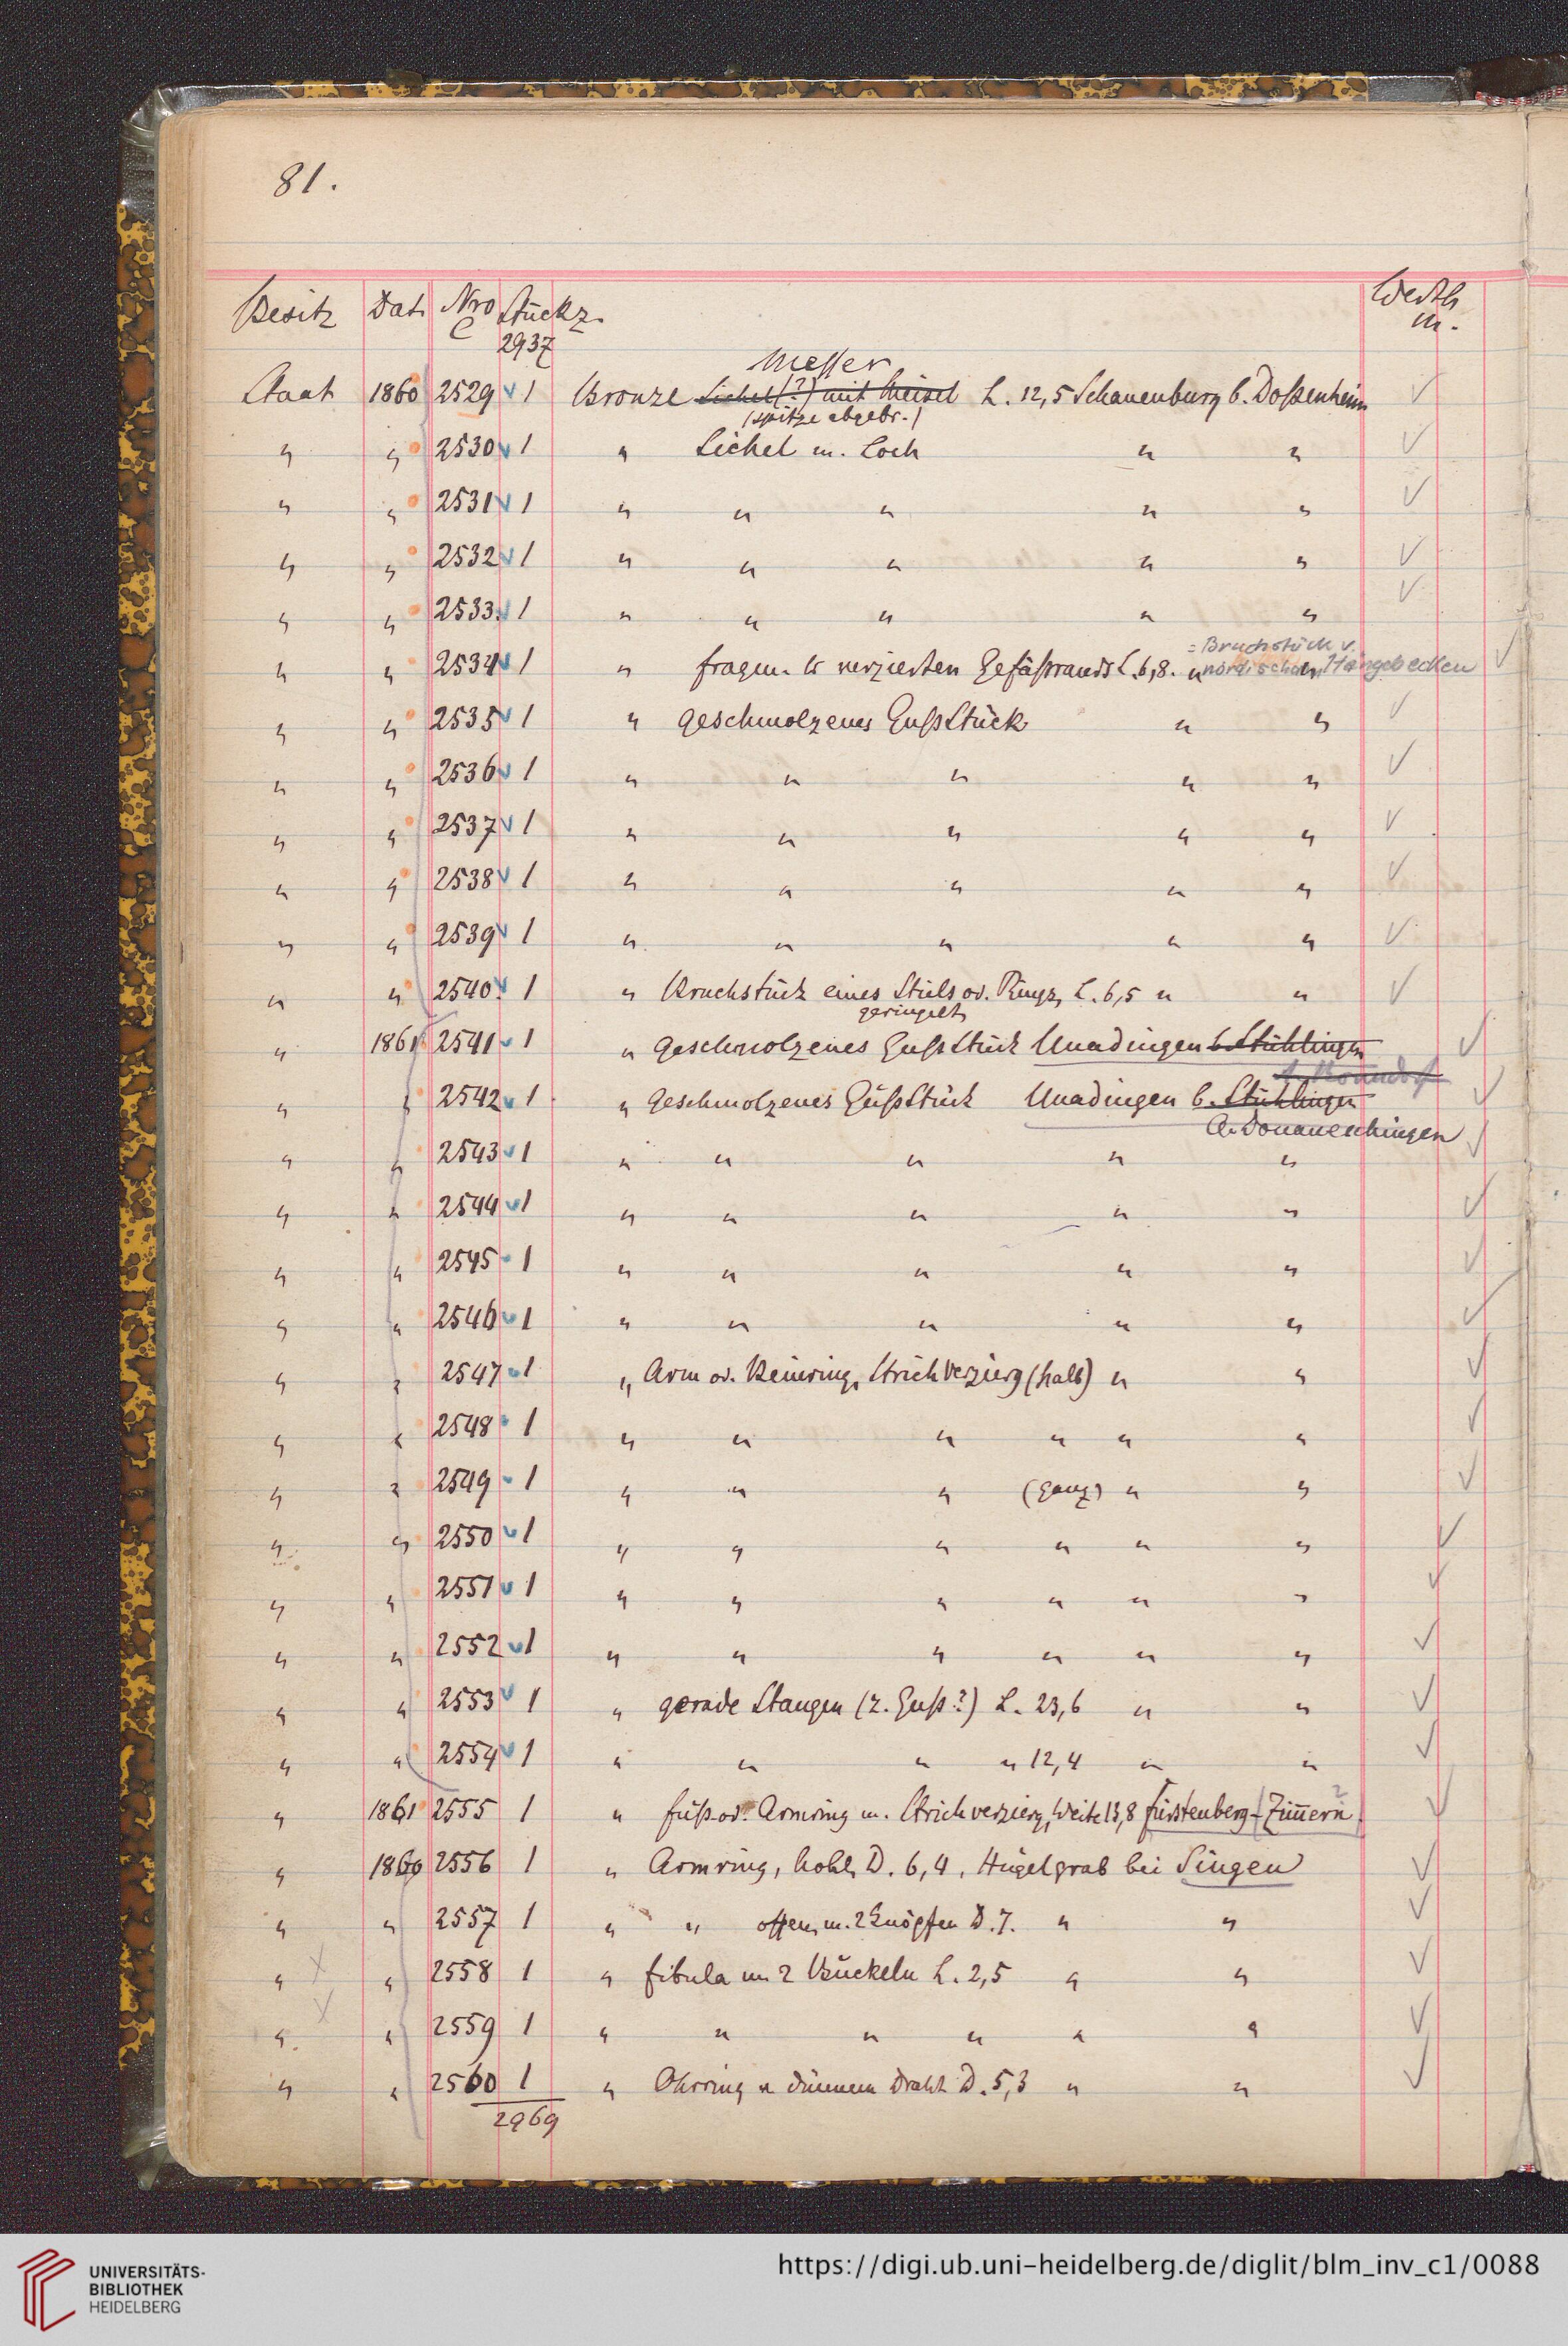 81.
Besitz Dat. Nro Stückz. Werth
C M.
2937
Messer
Staat 1860 2529 √ 1 Bronze Sichel (?) mit L. 12,5 Schauenburg b. Doßenheim √
(Spitze abgebr.)
" " 2530 √ 1 " Sichel m. Loch " " √
" " 2531 √ 1 " " " " " √
" " 2532 √ 1 " " " " " √
" " 2533 √ 1 " " " " " √
= Bruchstück v.
" " 2534 √ 1 " fragm. verzierten Gefäßrands L. 6,8. " nordischem Hängebecken √
" " 2535 √ 1 " geschmolzenes Gußstück " " √
" " 2536 √ 1 " " " " " √
" " 2537 √ 1 " " " " " √
" " 2538 √ 1 " " " " " √
" " 2539 √ 1 " " " " " √
" " 2540 √ 1 " Bruchstück eines Stiels od. Rings, L. 6,5 " " √
geringelt
" 1861 2541 √ 1 " Geschmolzenes Gußstück Unadingen b. Stühlingen √
" " 2542 √ 1 " Geschmolzenes Gußstück Unadingen b. Stühlingen √
A. Donaueschingen
" " 2543 √ 1 " " " " " √
" " 2544 √ 1 " " " " " √
" " 2545 √ 1 " " " " " √
" " 2546 √ 1 " " " " " √
" " 2547 √ 1 " Arm od. Beinring, Strichverzierg (halb) " " √
" " 2548 √ 1 " " " " " " √
" " 2549 √ 1 " " " (ganz) " " √
" " 2550 √ 1 " " " " " " √
" " 2551 √ 1 " " " " " " √
" " 2552 √ 1 " " " " " " √
" " 2553 √ 1 " gerade Stangen (z. Guß?) L. 23,6 " " √
" " 2554 √ 1 " " " " 12,4 " " √
" 1861 2555 1 " Fuß od. Armring m. Strichverzierg, Weite 13,8 Fürstenberg - Zim̅ern ? √
" 1860 2556 1 " Armring, hohl, D. 6,4, Hügelgrab bei Singen √
" " 2557 1 " " offen, m. 2 Knöpfen D. 7. " " √
" " 2558 1 " Fibula m 2 Buckeln L. 2,5 " " √
" " 2559 1 " " " " " " √
" " 2560 1 " Ohrring v dünnem Draht D. 5,3 " " √
2969
UNIVERSITÄTS-
BIBLIOTHEK
HEIDELBERG
https://digi.ub.uni-heidelberg.de/diglit/blm_inv_c1/0088